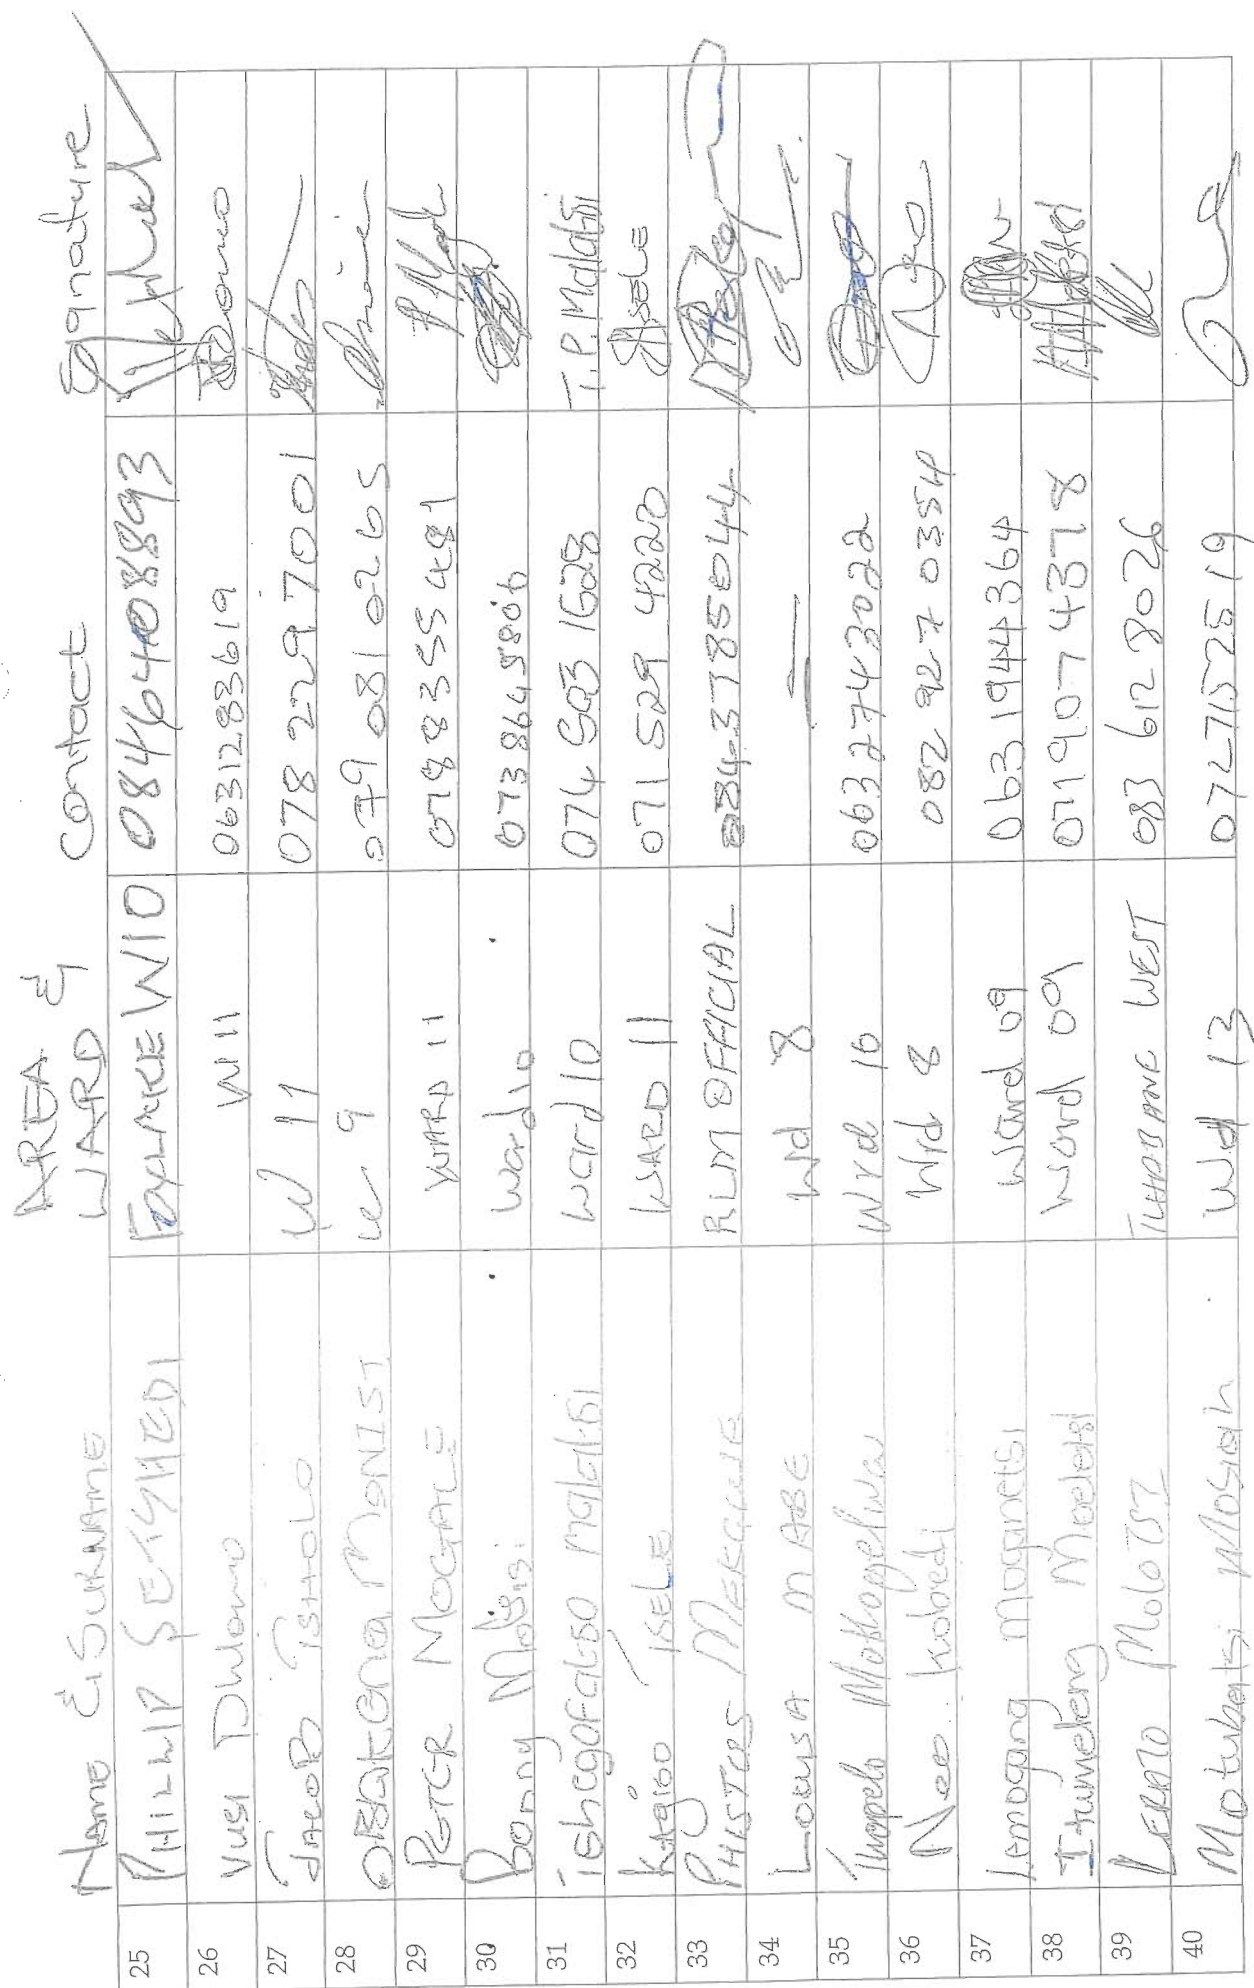 NAME & SURNAME AREA & WARD Contact Signature
25 PHILLIP SEKGHEDI W10 0846408893
26 Vusi Dhlomo W11 0631283619
27 JACOB TSHOLO W 11 078 229 7001
28 MONIST 9 079 081 0265
29 PETER MOGALE WARD 11 078 8355 481
30 Bonny Ward 10 073 864 5806
31 Ward 10 074 593 1628 T.P. Malatsi
32 Kagiso TSELE WARD 11 071 529 4220 TSELE
33 RLM OFFICIAL
34 MABE Wd 8 —
35 Wrd 10 063 274 3022
36 Neo Kobedi Wrd 8 082 927 0354
37 Lemogang Mognetsi Ward 09 063 1944364
38 Itumeleng Moeletsi Ward 09 0719074378
39 LERATO MOLOTSI TLHABANE WEST 083 612 8026
40 Mosiah Wd 13 0727152519